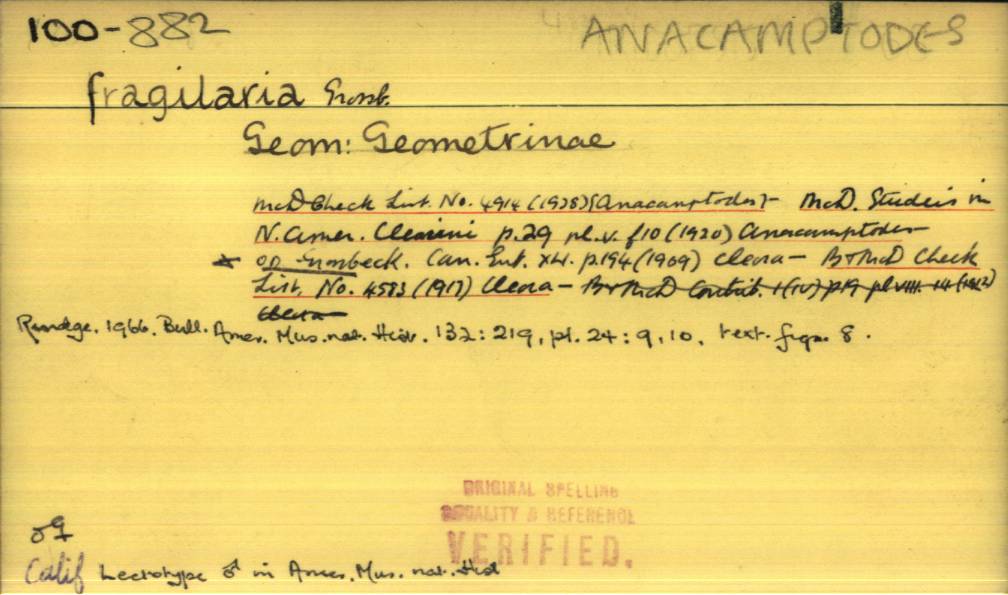 100-882 ANACAMPTODES
fragilaria Grossb.
Geom: Geometrinae
McD Check List. No. 4914 (1938) (Anacamptodes) - McD. Studies in
N. Amer. Cleorini p.29 pl.v. f10 (1920) Anacamptodes -
OD Grossbeck. Can. Ent. XLI. p.194 (1909) Cleora - B&McD Check
List. No. 4583 (1917) Cleora - B&McD Contrib. 1 (IV) p19 pl VIII. (1912)
Cleora
Rindge. 1966. Bull. Amer. Mus. nat. Hist. 132: 219, pl. 24: 9, 10, text-figs. 8.
ORIGINAL SPELLING
LOCALITY & REFERENCE
VERIFIED.
♂♀
Calif Lectotype ♂ in Amer. Mus. nat. Hist